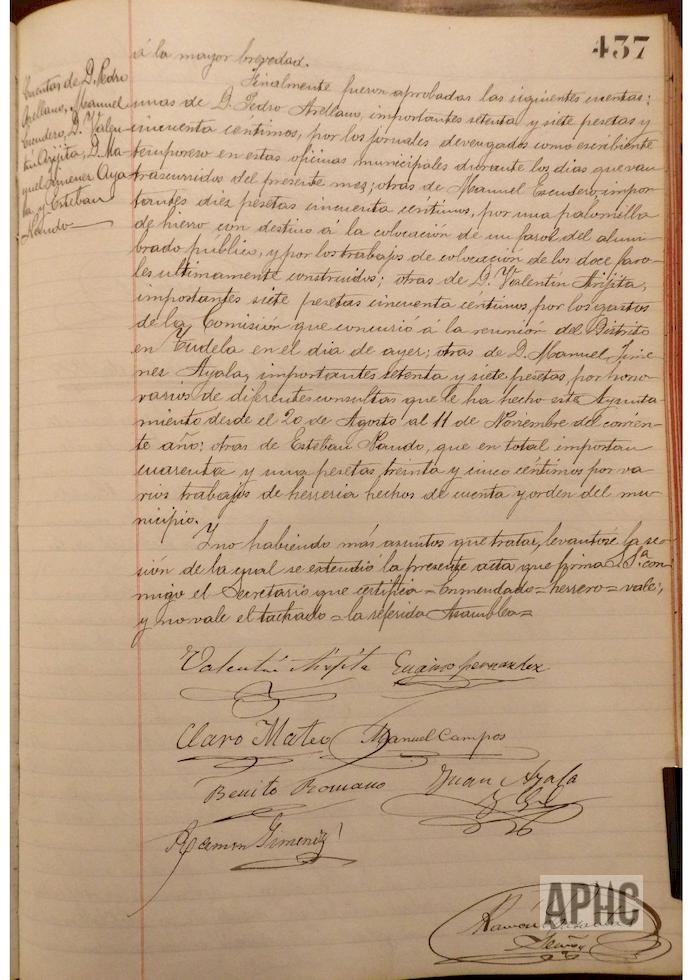 437
á la mayor brevedad.
Cuentas de D. Pedro
Arellano, Manuel
Escudero, D. Valen-
tín Arifita, D. Ma-
nuel Jimenez Aya-
la y Esteban
Pando
Finalmente fueron aprobadas las siguientes cuentas:
unas de D. Pedro Arellano, importantes setenta y siete pesetas y
cincuenta centimos, por los jornales devengados como escribiente
temporero en estas oficinas municipales durante los dias que van
trascurridos del presente mes; otras de Manuel Escudero, impor-
tantes diez pesetas cincuenta céntimos, por una palomilla
de hierro con destino a la colocación de un farol del alum-
brado público, y por los trabajos de colocación de los doce faro-
les ultimamente construidos; otras de D. Valentín Arifita,
importantes siete pesetas cincuenta céntimos, por los gastos
de la Comisión que concurrió á la reunión del Distrito
en Tudela en el dia de ayer; otras de D. Manuel Jime-
nez Ayala, importantes setenta y siete pesetas, por hono-
rarios de diferentes consultas que le ha hecho este Ayunta-
miento desde el 20 de Agosto al 11 de Noviembre del corrien-
te año; otras de Esteban Pando, que en total importan
cuarenta y una pesetas, treinta y cinco céntimos por va-
rios trabajos de herreria hechos de cuenta y orden del mu-
nicipio.
Y no habiendo más asuntos que tratar, levantóse la se-
sión de la cual se extendió la presente acta que firma S. Sª. con-
migo el Secretario que certifica = Enmendado = herrero = vale;
y no vale el tachado = la referida Asamblea =
Valentín Arifita
Claro Mateo
Manuel Campos
Benito Romano
Juan Ayala
Ramon Gimenez
Ramón
APHC